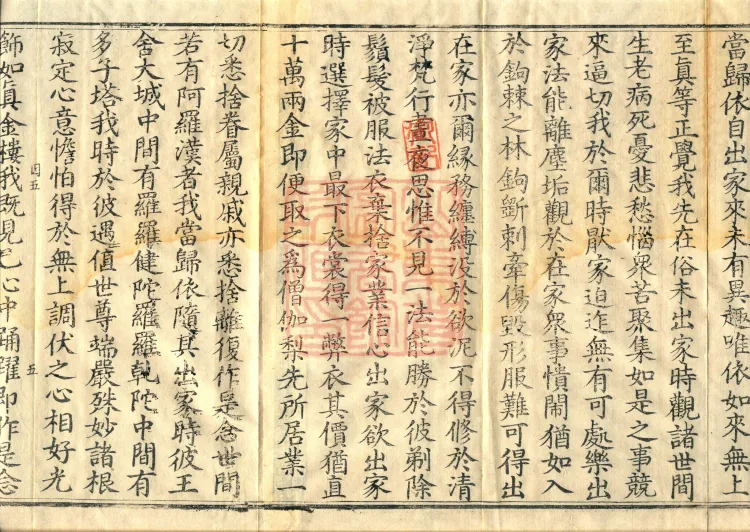 當歸依自出家來未有異趣唯依如來無上
至真等正覺我先在俗未出家時觀諸世間
生老病死憂悲愁惱眾苦聚集如是之事競
來逼切我於爾時猒家迫迮無有可處樂出
家法能離塵垢觀於在家眾事憒閙猶如入
於鉤棘之林鉤斷刺牽傷毀形服難可得出
在家亦爾緣務纏縛沒於欲泥不得修於清
淨梵行晝夜思惟不見一法能勝於彼剃除
鬚髮被服法衣棄捨家業信心出家欲出家
時選擇家中最下衣裳得一弊衣其價猶直
十萬兩金即便取之為僧伽梨先所居業一
切悉捨眷屬親戚亦悉捨離復作是念世間
若有阿羅漢者我當歸依隨其出家時彼王
舍大城中間有羅羅健陀羅羅乾陀中間有
多子塔我時於彼遇值世尊端嚴殊妙諸根
寂定心意憺怕得於無上調伏之心相好光
飾如真金樓我既見已心中踊躍即作是念
五